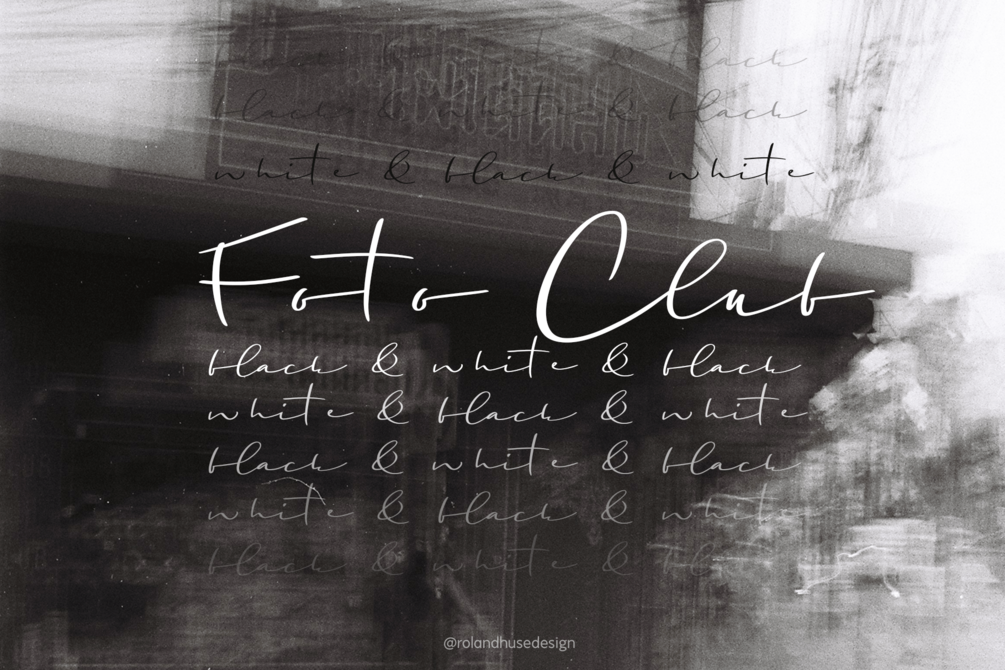 black & white & black
black & white & black
white & black & white
Foto Club
black & white & black
white & black & white
black & white & black
white & black & white
black & white & black
@rolandhusedesign